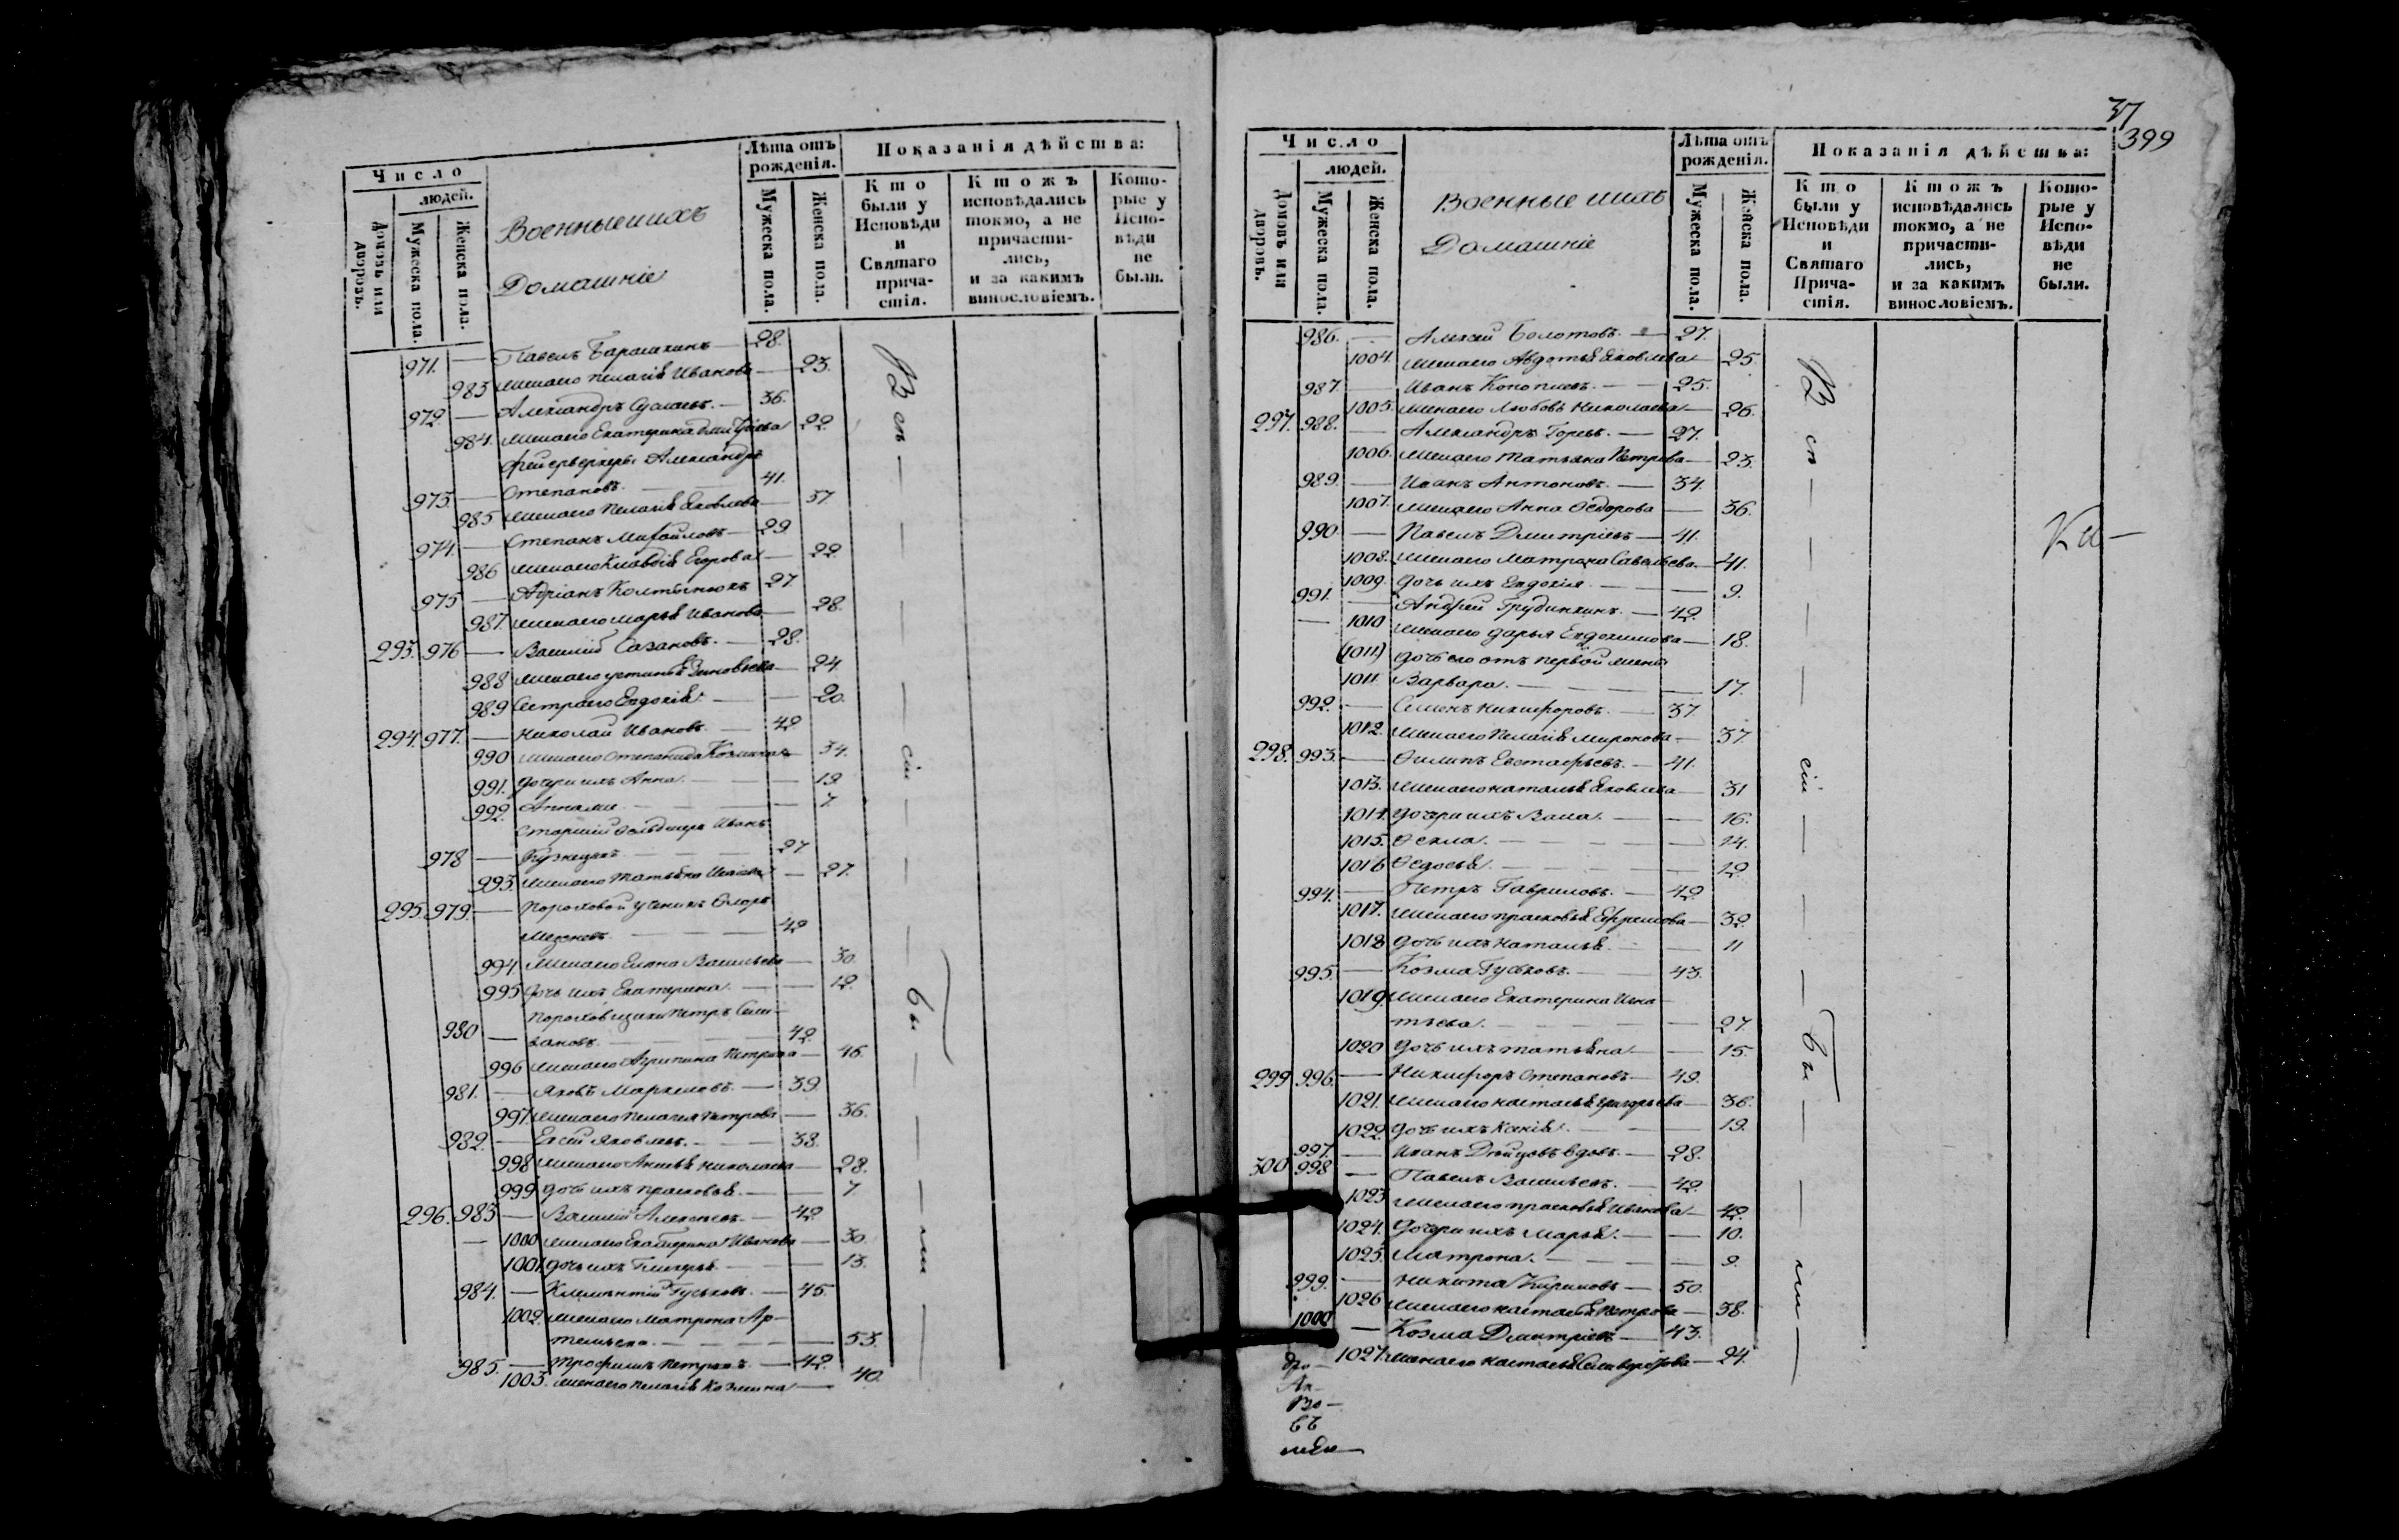 Число
людей.
Домовъ или дворовъ.
Мужеска пола.
Женска пола.
Военные ихъ
Домашніе
Лѣта отъ рожденія.
Мужеска пола.
Женска пола.
Показанія дѣйства:
Кто были у Исповѣди и Святаго причастія.
Ктожъ исповѣдались токмо, а не причастились, и за какимъ винословіемъ.
Которые у Исповѣди не были.
971. — Павелъ — 28.
983 жена его Пелагія Иванова — 23.
972. — Александръ — 36.
984. жена его Екатерина — 22
Фейерверкеръ Александръ
973. — Степановъ. — 41.
985 жена его Пелагія Яковлева — 37
974. — Степанъ Михайловъ — 29
986 жена его Клавдія Егорова — 22
975 — Адріанъ — 27
987. жена его Марья Иванова — 28.
293. 976 — Василій Сазановъ. — 28.
988 жена его Устинья — 24.
989 Сестра его Евдокія — 20.
294. 977. — Николай Ивановъ. — 42
990 жена его Степанида — 34.
991. дочери ихъ Анна — 19.
992. — 7
Старшій Иванъ
978 — — 27
993. жена его Татьяна — 27.
295. 979. — Пороховой ученикъ
— 42
994 жена его Елена Васильева — 30.
995 дочь ихъ Екатерина — 12.
Петръ Сели-
980 — вановъ. — 42
996 жена его Агрипина Петрова — 46.
981. — Яковъ Маркеловъ. — 39.
997. жена его Пелагея Петрова — 36.
982. — Яковлевъ. — 38.
998 жена его Николаева — 28.
999 дочь ихъ Прасковья — 7.
296. 983 — Василій Алексѣевъ — 42
— 1000 жена его Екатерина Иванова — 30.
1001. дочь ихъ — 13.
984. — Климентій Гуськовъ. — 45.
1002. жена его Матрона Ар-
темьева. — 53.
985. — Трофимъ Петровъ — 42.
1003. жена его Пелагія Козмина — 40.
Всѣ
сіи
бы
ли
37
399
Число
людей.
Домовъ или дворовъ.
Мужеска пола.
Женска пола.
Военные ихъ
Домашніе
Лѣта отъ рожденія.
Мужеска пола.
Женска пола.
Показанія дѣйства:
Кто были у Исповѣди и Святаго Причастія.
Ктожъ исповѣдались токмо, а не причастились, и за какимъ винословіемъ.
Которые у Исповѣди не были.
986. — Алексѣй Болотовъ. — 27.
1004. жена его Авдотья Яковлева — 25.
987. — Иванъ — 25.
1005. жена его Любовь Николаева — 26.
297. 988. — Александръ — 27.
1006. жена его Татьяна Петрова — 23.
989. — Иванъ Антоновъ. — 34.
1007. жена его Анна Ѳедорова — 36.
990 — Павелъ Дмитріевъ — 41.
1008. жена его Матрона Савельева — 41.
1009. дочь ихъ Евдокія — 9.
991. — Андрей Грудинкинъ. — 42.
— 1010 жена его Дарья Евдокимова — 18.
(1011) дочь его отъ первой жены
1011. Варвара. — 17.
992. — Семенъ Никифоровъ. — 37.
1012. жена его Пелагія Миронова — 37.
298. 993. — Филипъ Евстафьевъ. — 41.
1013. жена его Наталья Яковлева — 31
1014. дочери ихъ — 16.
1015. Ѳекла. — 14.
1016 Ѳедосья. — 12
994. — Петръ Гавриловъ. — 42
1017. жена его Прасковья Ефремова — 32.
1018 дочь ихъ Наталья — 11
995. — Козма Гуськовъ. — 43.
1019. жена его Екатерина Игна-
тьева. — 27.
1020 дочь ихъ Татьяна — 15.
299 996. — Никифоръ Степановъ — 49.
1021. жена его Настасья Григорьева — 36.
1022. дочь ихъ — 19.
997. — Иванъ вдовъ. — 28.
300 998 — Павелъ Васильевъ. — 42.
1023 жена его Прасковья Иванова — 42.
1024. дочери ихъ Марья. — 10.
1025. Матрона. — 9.
999. — Никита Кириловъ — 50.
1026 жена его Настасья Петрова — 38.
1000 — Козма Дмитріевъ — 43.
1027. жена его Настасья — 24.
Всѣ
сіи
бы
ли